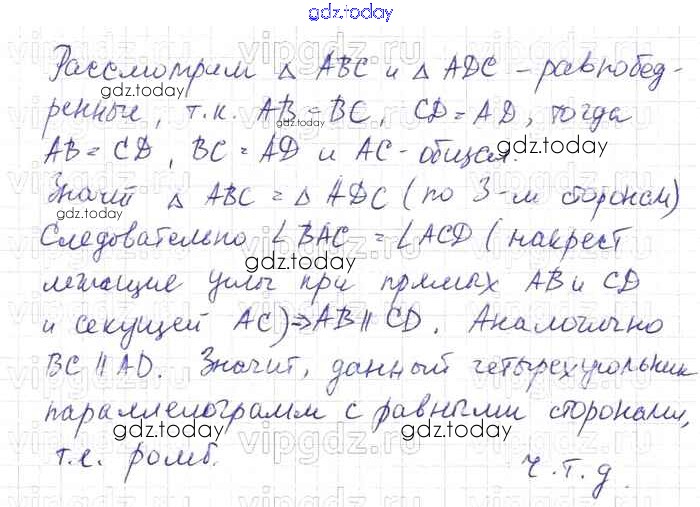 gdz.today
Рассмотрим △ ABC и △ ADC – равнобед-
ренные, т.к. AB = BC, CD = AD, тогда
AB = CD, BC = AD и AC - общая.
Значит △ ABC = △ ADC (по 3-м сторонам)
Следовательно ∠BAC = ∠ACD (накрест
лежащие углы при прямых AB и CD
и секущей AC) ⇒ AB ∥ CD. Аналогично
BC ∥ AD. Значит, данный четырехугольник
параллелограмм с равными сторонами,
т.е. ромб. ч.т.д.